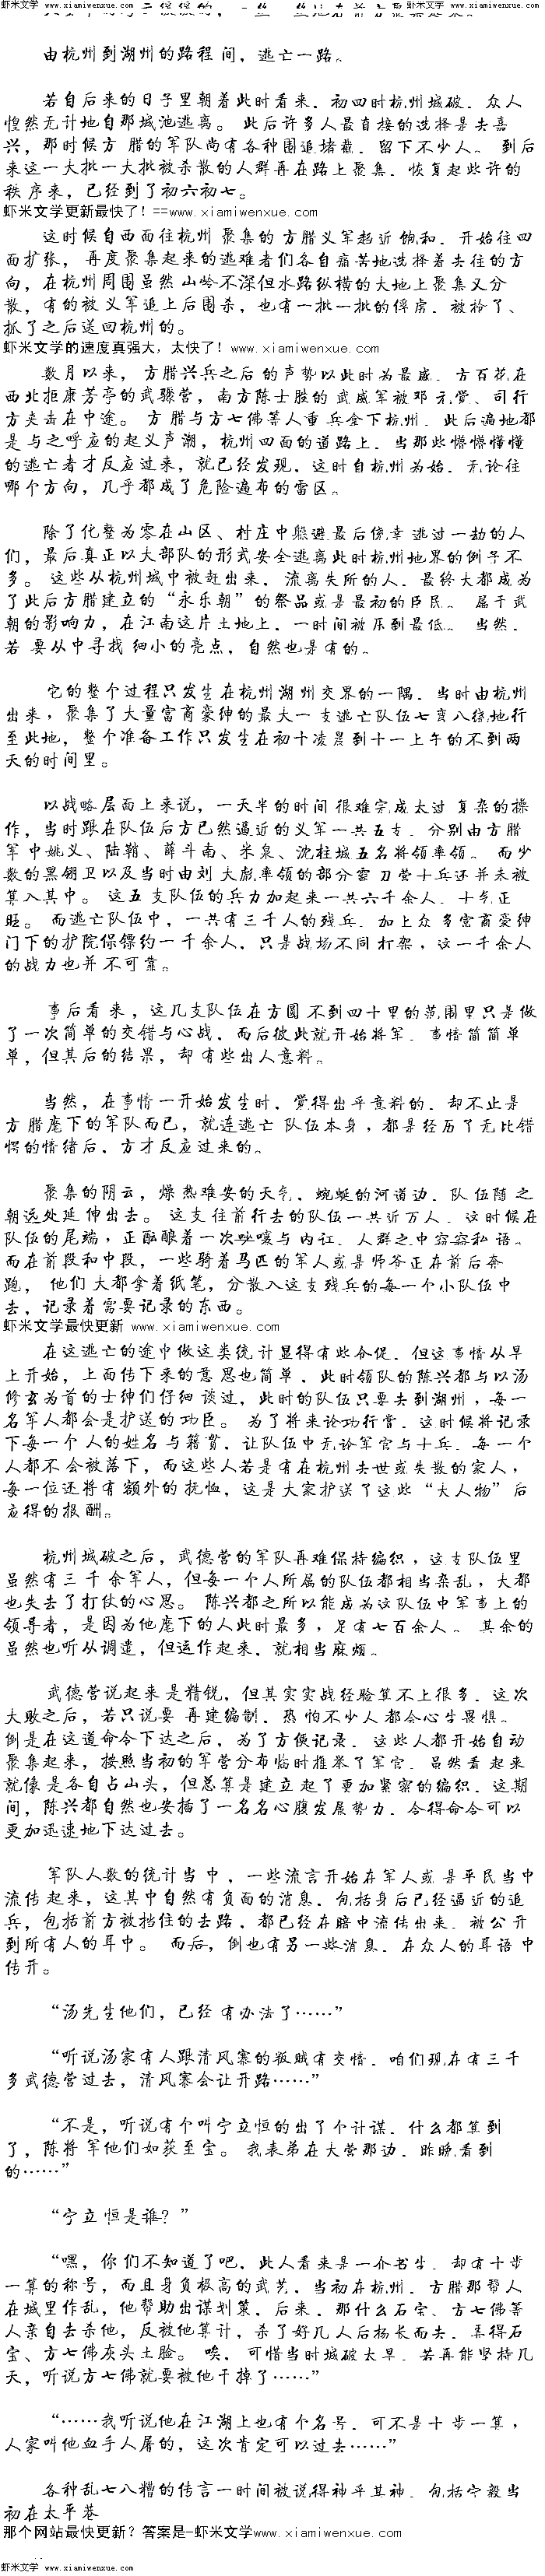 虾米文学 www.xiamiwenxue.com 虾米文学 www.xiamiwenxue.com
由杭州到湖州的路程间，逃亡一路。
若自后来的日子里朝着此时看来，初四时杭州城破，众人
惶然无计地自那城池逃离。 此后许多人最直接的选择是去嘉
兴，那时候方 腊的军队尚有各种围追堵截，留下不少人。 到后
来这一大批一大批被杀散的人群再在路上聚集，恢复起些许的
秩序来，已经到了初六初七。
虾米文学更新最快了！==www.xiamiwenxue.com
这时候自西面往杭州 聚集的 方腊义军趋近 饱和，开始往四
面扩张， 再度聚集起来的逃难者们各自痛苦地选择着去往的方
向，在杭州周围虽然 山岭不深但水路纵横的大地上聚集又分
散，有的被义军追上后围杀，也有一批一批的俘虏，被捡了、
抓了之后送回杭州的。
虾米文学的速度真强大，太快了！www.xiamiwenxue.com
数月以来， 方腊兴兵之后的声势以此时为最盛，方百花在
西北拒康芳亭的武骠营，南方陈士胜的 武威军被邓元觉、司行
方夹击在中途。 方腊与方七佛等人重 兵拿下杭州，此后遍地都
是与之呼应的起义声潮，杭州四面的道路上，当那些懵懵懂懂
的逃亡者才反应过来，就已经发现，这时自杭州为始，无论往
哪个方向，几乎都成了危险遍布的雷区。
除了化整为零在山区、村庄中躲避最后侥幸 逃过一劫的人
们，最后真正以大部队的形式安全逃离此时杭州地界的例子不
多。 这些从杭州城中被赶出来，流离失所的人，最终大都成为
了此后方腊建立的“永乐朝”的祭品或是最初的臣民。 属于武
朝的影响力，在江南这片土地上，一时间被压到最低。 当然，
若 要从中寻找 细小的亮点，自然也是有的。
它的整个过程只发生在杭州湖州交界的一隅，当时由杭州
出来，聚集了大量富商豪绅的最大一 支逃亡队伍七弯八绕地行
至此地，整个准备工作只发生在初十凌晨到十一上午的不到两
天的时间里。
以战略层面上来说，一天半的时间 很难完成太过 复杂的操
作，当时跟在队伍后方已然逼近的义军一共五支，分别由方腊
军 中姚义、陆鞘、薛斗南、米泉、沈柱城五名将领率领。 而少
数的黑翎卫以及当时由刘 大彪率领的部分霸 刀营士兵还并未被
算入其中。 这五支队伍的兵力加起来一共六千余人，士气正
旺。 而逃亡队伍中，一共有三千人的残兵，加上众多富商豪绅
门下的护院保镖约一千余人，只是战场不同打架，这一千余人
的战力也并不可靠。
事后看来，这几支队伍在方圆 不到四十里的范围里只是做
了一次简单的交错与心战，而后彼此就开始将军，事情简简单
单，但其后的结果，却有些出人意料。
当然，在事情一开始发生时，觉得出乎意料的，却不止是
方 腊麾下的军队而已，就连逃亡 队伍本身，都是经历了无比错
愕的情绪后，方才反应过来的。
聚集的阴云，燥热难安的天气，蜿蜒的河道边，队伍随之
朝远处延伸出去。 这支往前行去的队伍一共近万人，这时候在
队伍的尾端，正酝酿着一次哗变与内讧，人群之中窃窃私语。
而在前段和中段，一些骑着马匹的军人或是师爷正在前后奔
跑， 他们大都拿着纸笔，分散入这支残兵的每一个小队伍中
去，记录着需要记录的东西。
虾米文学最快更新 www.xiamiwenxue.com
在这逃亡的途中做这类统计显得有些仓促，但这事情从早
上开始，上面传下来的意思也简单，此时领队的陈兴都与以汤
修玄为首的士绅们仔细谈过，此时的队伍只要去到湖州，每一
名军人都会是护送的功臣。 为了将来论功行赏，这时候将记录
下每一个人的姓名与籍贯，让队伍中无论军官与士兵，每一个
人都不会被落下，而这些人若是有在杭州去世或失散的家人，
每一位还将有额外的抚恤，这是大家护送了这些“大人物”后
应得的报酬。
杭州城破之后，武德营的军队再难保持编织，这支队伍里
虽然有三千余军人，但每一个人所属的队伍都相当杂乱，大都
也失去了打仗的心思。 陈兴都之所以能成为这队伍中军事上的
领导者，是因为他麾下的人此时最多，足有七百余人。 其余的
虽然也听从调遣，但运作起来，就相当麻烦。
武德营说起来是精锐，但其实实战经验算不上很多，这次
大败之后，若只说要 再建编制，恐怕不少人都会心生畏惧。
倒是在这道命令下达之后，为了方便记录，这些人都开始自动
聚集起来，按照当初的军营分布临时推举了军官，虽然看起来
就像是各自占山头，但总算是建立起了更加紧密的编织，这期
间，陈兴都自然也安插了一名名心腹发展势力，令得命令可以
更加迅速地下达过去。
军队人数的统计当中，一些流言开始在军人或是平民当中
流传起来，这其中自然有负面的消息，包括身后已经逼近的追
兵，包括前方被挡住的去路，都已经在暗中流传出来，被公开
到所有人的耳中。 而后，倒也有另一些消息，在众人的耳语中
传开。
“汤先生他们，已经有办法了……”
“听说汤家有人跟清风寨的叛贼有交情，咱们现在有三千
多武德营过去，清风寨会让开路……”
“不是，听说有个叫宁立恒的出了个计谋，什么都算到
了，陈将军他们如获至宝。 我表弟在大营那边，昨晚看到
的……”
“宁立恒是谁？”
“嘿，你们不知道了吧，此人看来是一介书生，却有十步
一算的称号，而且身负极高的武艺，当初在杭州，方腊那帮人
在城里作乱，他帮助出谋划策，后来，那什么石宝、方七佛等
人亲自去杀他，反被他算计，杀了好几人后扬长而去，弄得石
宝、方七佛灰头土脸。 唉，可惜当时城破太早，若再能坚持几
天，听说方七佛就要被他干掉了……”
“……我听说他在江湖上也有个名号，可不是十步一算，
人家叫他血手人屠的，这次肯定可以过去……”
各种乱七八糟的传言一时间被说得神乎其神，包括宁毅当
初在太平巷
那个网站最快更新？答案是-虾米文学www.xiamiwenxue.com
虾米文学 www.xiamiwenxue.com